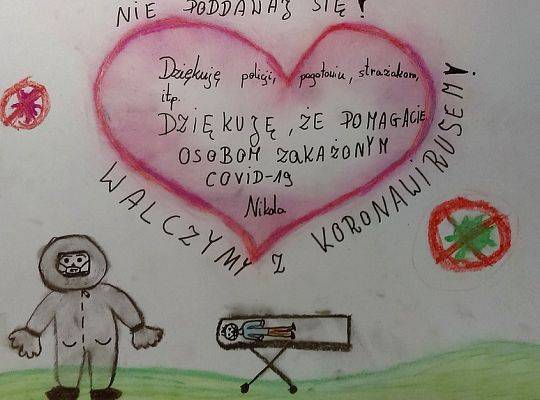 NIE PODDAWAJ SIĘ!
Dziękuję policji, pogotowiu, strażakom,
itp.
DZIĘKUJĘ, ŻE POMAGACIE
OSOBOM ZAKAŻONYM
COVID-19
Nikola
WALCZYMY Z KORONAWIRUSEM!